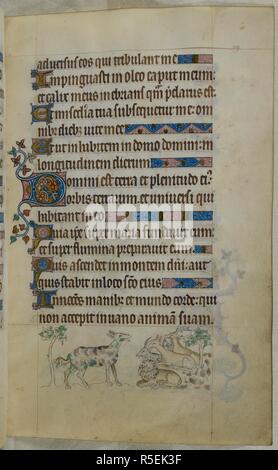 aduersus eos qui tribulant me
Inpinguasti in oleo caput meum:
et calix meus inebrians qm̄ p̄clarus est
Et mis̄cdia tua subsequetur me: om
nib; dieb; uite mee
Et ut inhabitem in domo domini: in
longitudinem dierum
Domini est terra et plenitudo ei᾽
orbis terrarum, et uniuersi qui
habitant in eo
Quia ip̄e super maria fundauit eum:
et super flumina preparauit eum
Quis ascendet in montem dn̄i: aut
quis stabit in loco sc̄o eius
Innocens manib; et mundo corde: qui
non accepit in uano animā suam.
alamy
R5EK3F